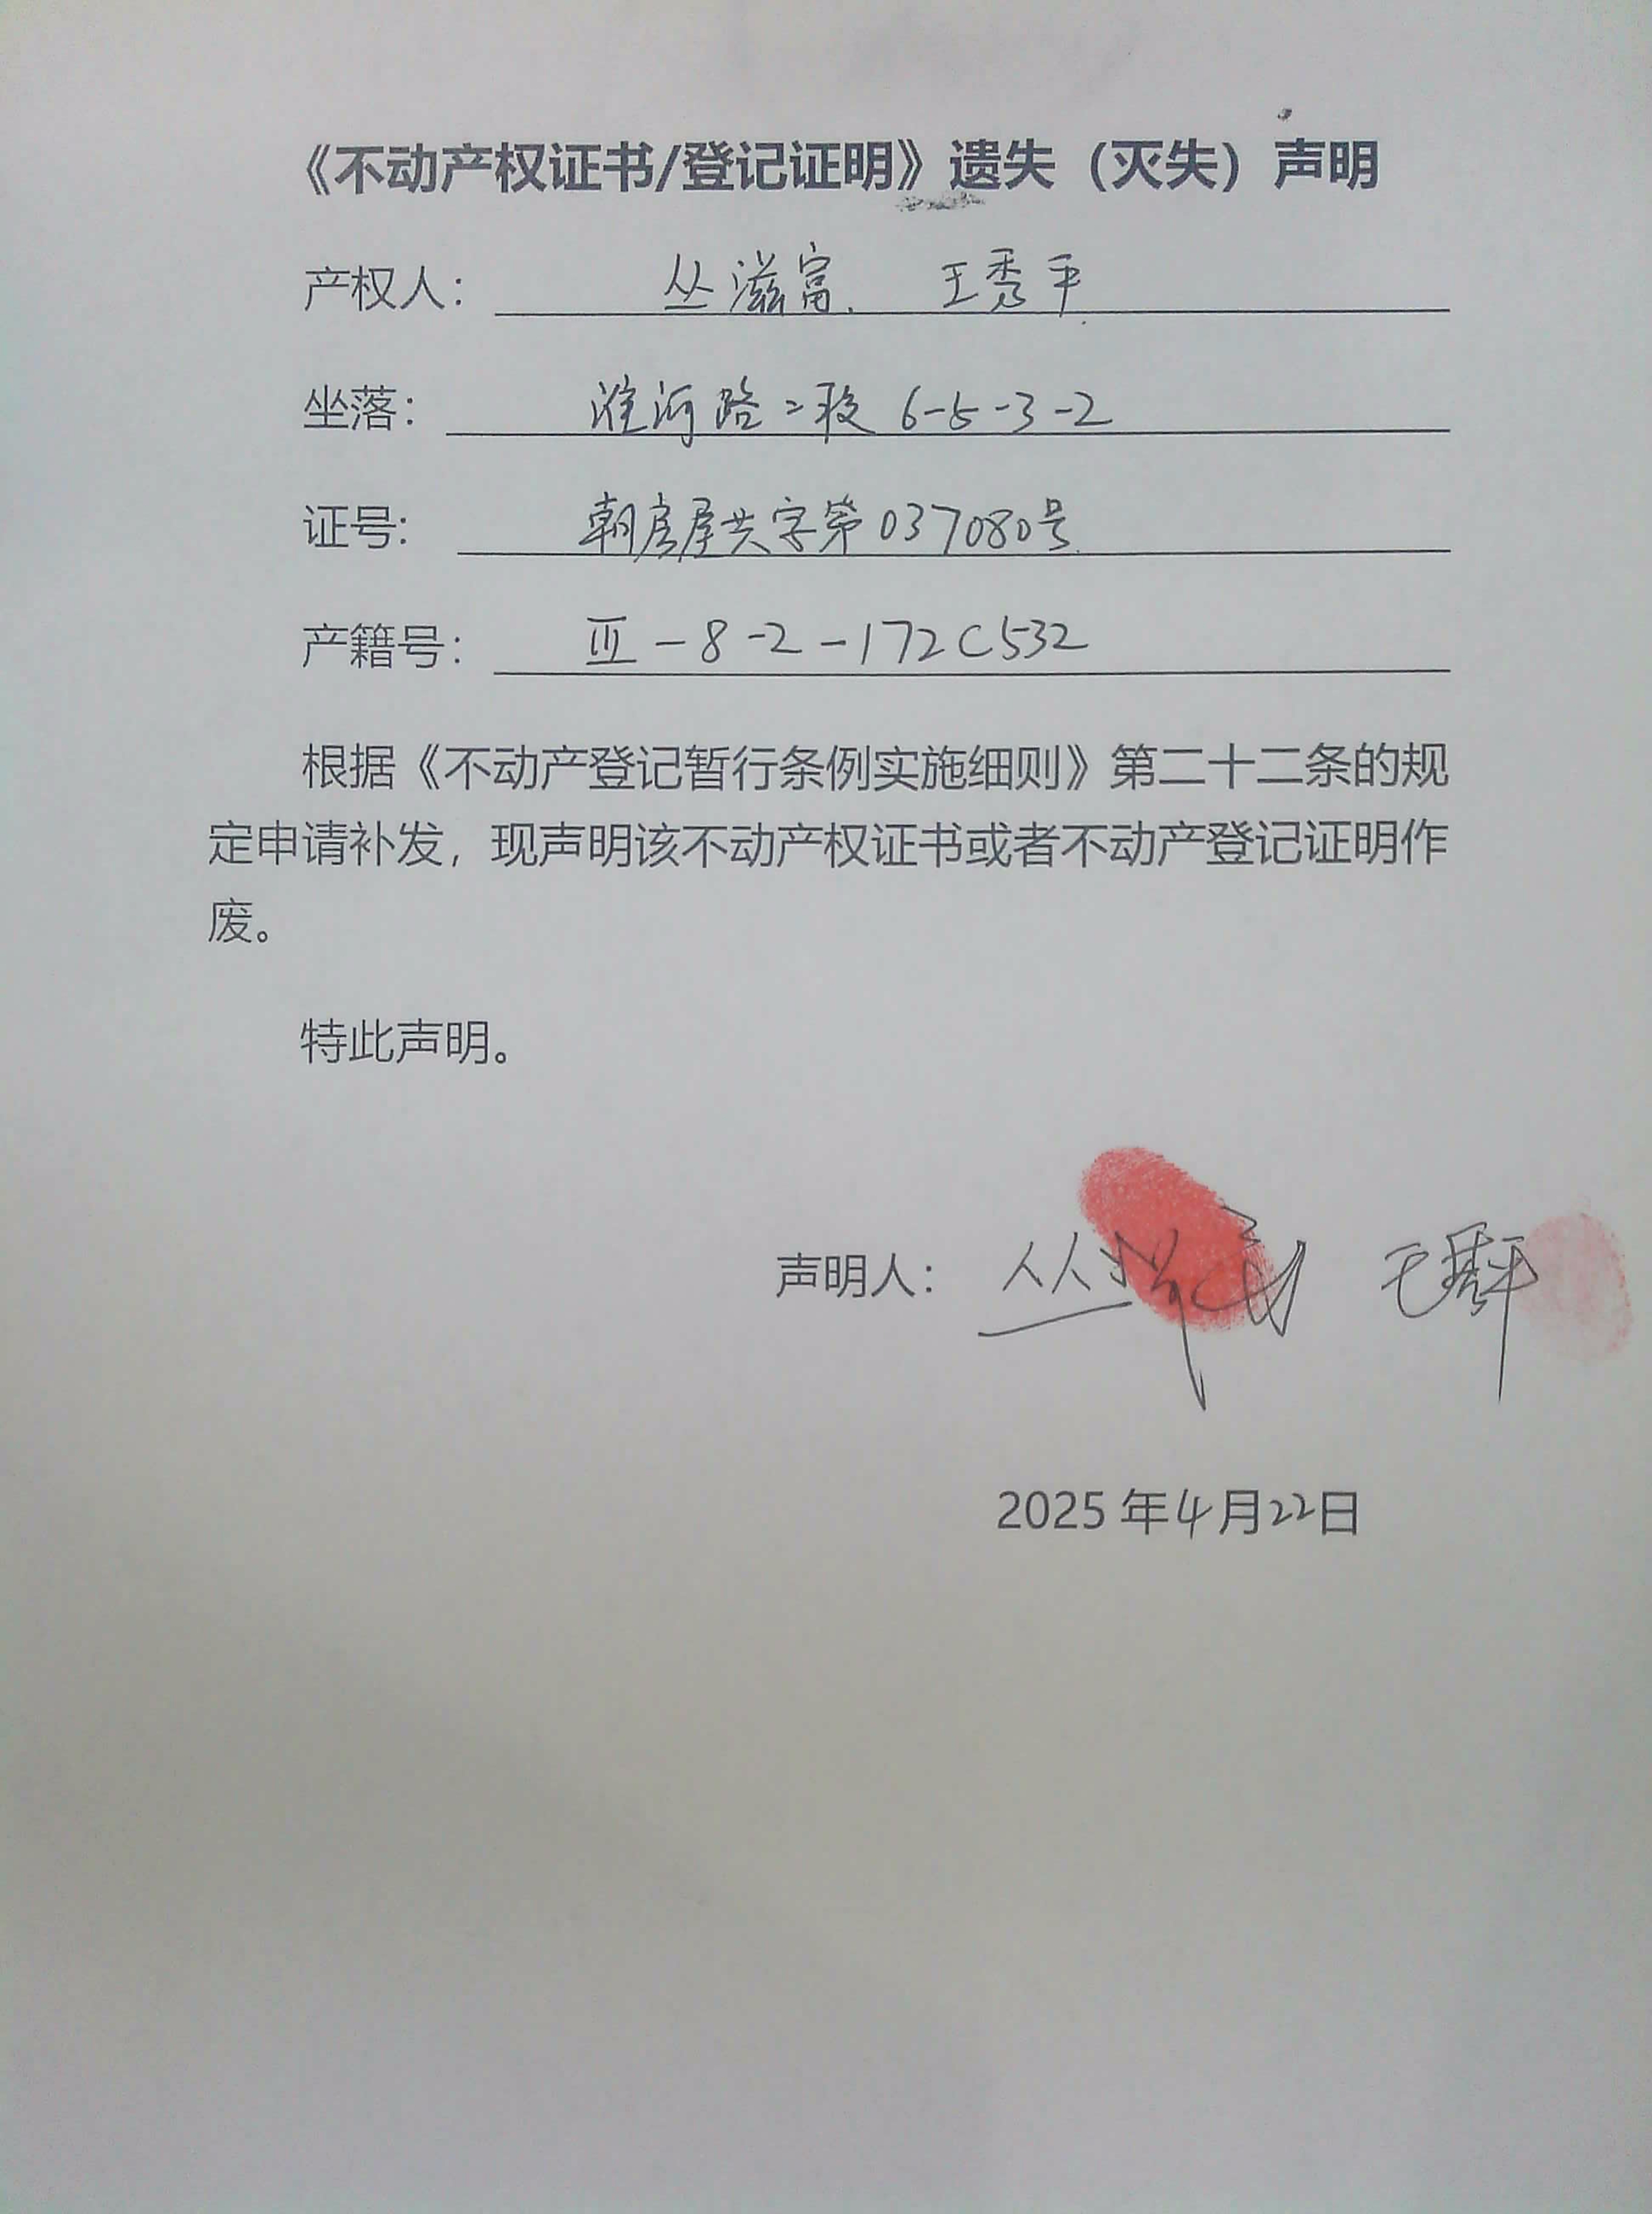 《不动产权证书/登记证明》遗失（灭失）声明
产权人： 丛滋富、 王秀平
坐落： 淮河路二段6-5-3-2
证号： 朝房屋共字第037080号
产籍号： Ⅲ-8-2-172C532
根据《不动产登记暂行条例实施细则》第二十二条的规
定申请补发，现声明该不动产权证书或者不动产登记证明作
废。
特此声明。
声明人： 丛滋富 王秀平
2025年4月22日